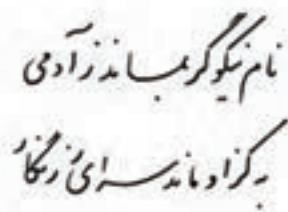 نام نیکو گر بماند ز آدمی
به کزو ماند سرای زرنگار